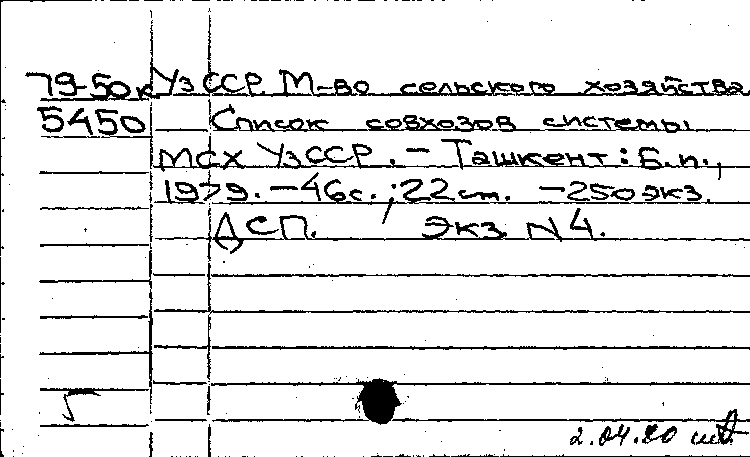 79-50к УзССР. М-во сельского хозяйства
5450 Список совхозов системы
МСХ УзССР. – Ташкент: Б.и.,
1979. – 46 с.; 22 см. – 250 экз.
ДСП. Экз. N 4.
2.04.80